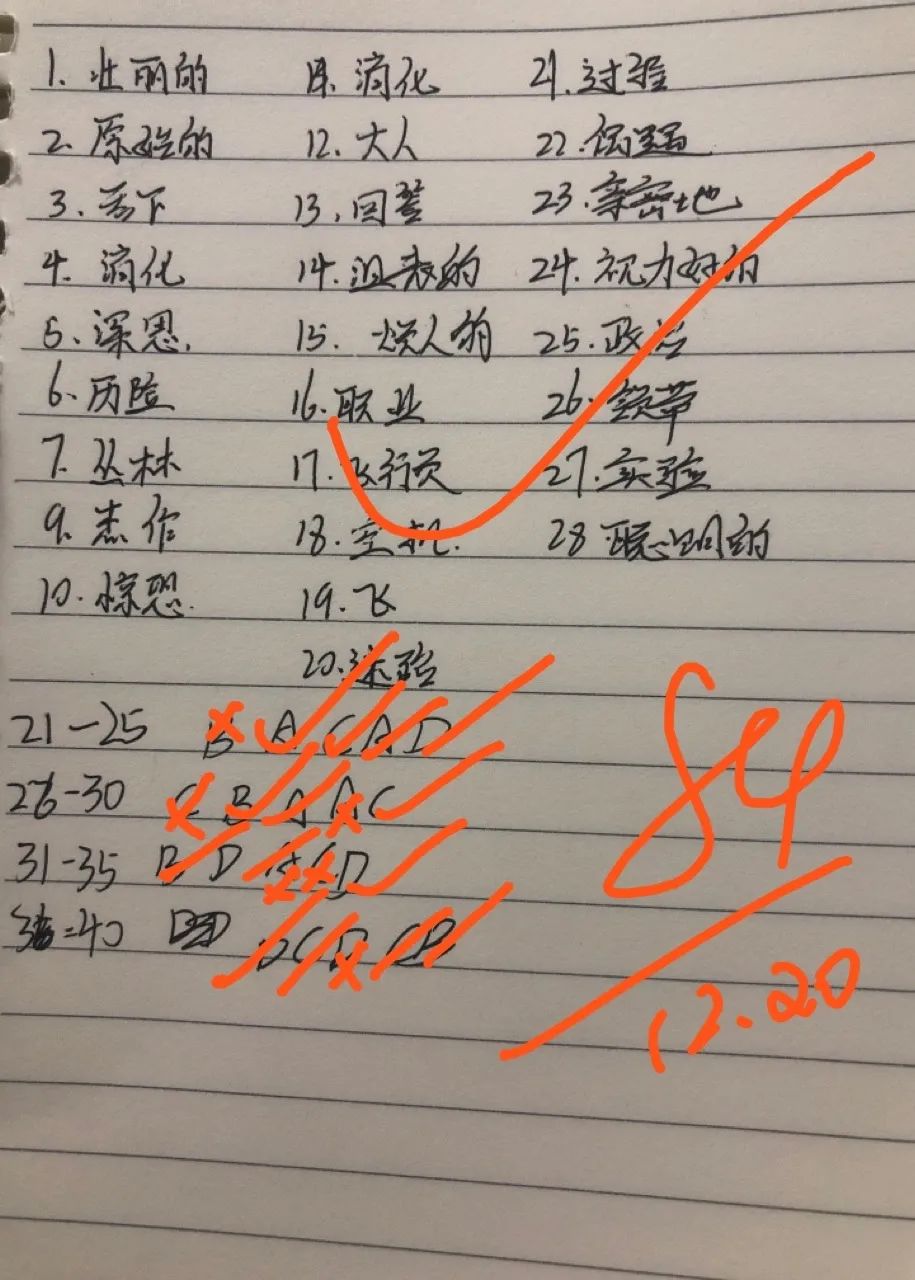 1. 壮丽的 11. 消化 21. 过程
2. 原始的 12. 大人 22.
3. 吞下 13. 回答 23. 亲密地
4. 消化 14. 沮丧的 24. 视力好的
5. 深思. 15. 烦人的 25. 政治
6. 历险 16. 职业 26. 领带
7. 丛林 17. 飞行员 27. 实验
9. 杰作 18. 司机. 28 聪明的
10. 惊恐. 19. 飞
20. 体验
21-25 B A C A D
26-30 C B A A C
31-35 B D C D
-40 D C D C B
84
12.20